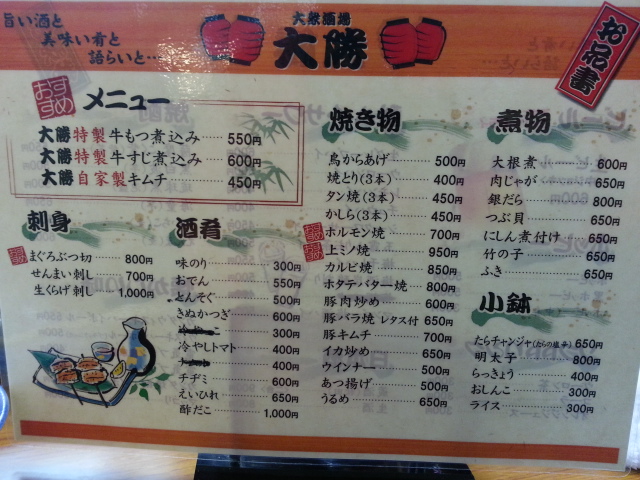 旨い酒と
美味い肴と
語らいと…
大衆酒場
大勝
お品書
おすすめ
メニュー
大勝 特製 牛もつ煮込み 550円
大勝 特製 牛すじ煮込み 600円
大勝 自家製 キムチ 450円
刺身
おすすめ
まぐろぶつ切 800円
せんまい刺し 700円
生くらげ刺し 1,000円
酒肴
味のり 300円
おでん 550円
とんそく 500円
きぬかつぎ 600円
300円
冷やしトマト 400円
400円
チヂミ 600円
えいひれ 650円
酢だこ 1,000円
焼き物
鳥からあげ 500円
焼とり(3本) 400円
タン焼(3本) 450円
かしら(3本) 450円
おすすめ
ホルモン焼 700円
おすすめ
上ミノ焼 950円
カルビ焼 850円
ホタテバター焼 800円
豚肉炒め 600円
豚バラ焼 レタス付 650円
豚キムチ 700円
イカ炒め 650円
ウインナー 500円
あつ揚げ 500円
うるめ 650円
煮物
大根煮 600円
肉じゃが 650円
銀だら 800円
つぶ貝 650円
にしん煮付け 650円
竹の子 650円
ふき 650円
小鉢
たらチャンジャ(たらの塩辛) 650円
明太子 800円
らっきょう 400円
おしんこ 300円
ライス 300円